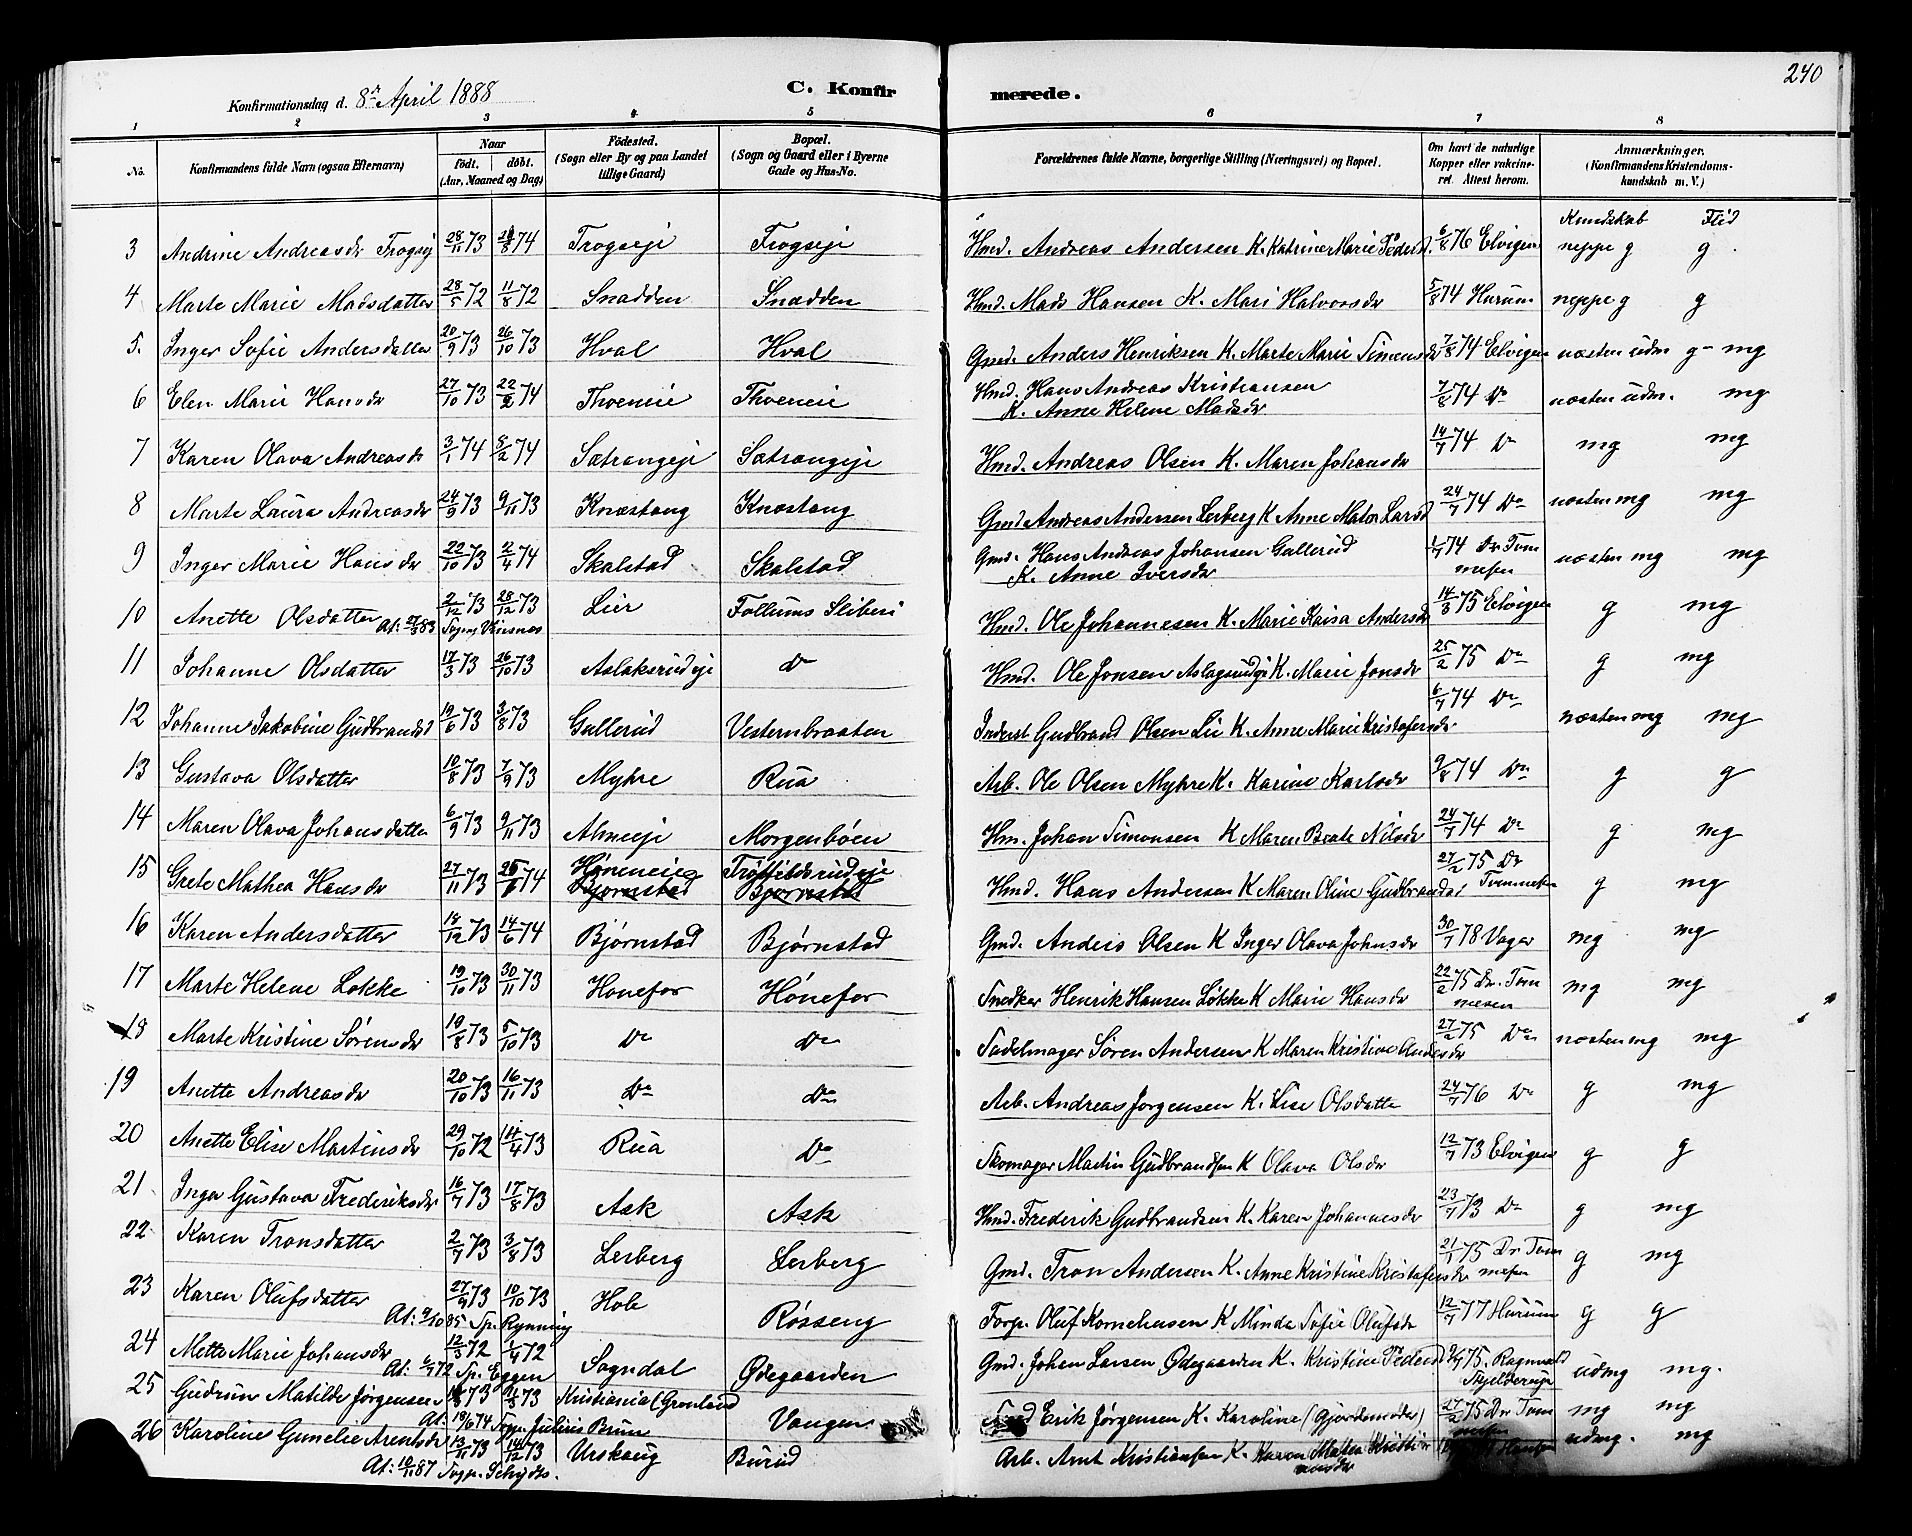 240
Konfirmationsdag d. 8de April 1888
C. Konfirmerede.
1 2 3 4 5 6 7 8
No. Konfirmandens fulde Navn (ogsaa Efternavn) Naar født. døbt. (Aar, Maaned og Dag) Födested. (Sogn eller By og paa Landet tillige Gaard) Bopæl. (Sogn og Gaard eller i Byerne Gade og Hus-No. Forældrenes fulde Navne, borgerlige Stilling (Næringsvei) og Bopæl. Om havt de naturlige Kopper eller vakcineret. Attest herom. Anmærkninger. (Konfirmandens Kristendomskundskab m. V.)
Kundskab Flid
3 Andrine Andreasdr Frogseje 28/11 73 /8 74 Frogseje Frogseje Hmd. Andreas Andersen K. Katrine Marie Pedersd. 6/8 76 Elvigen neppe g g
4 Marte Marie Madsdatter 28/5 72 11/8 72 Snadden Snadden Hmd. Mads Hansen K. Mari Halvorsdr 5/8 74 Hurum neppe g g
5. Inger Sofie Andersdatter 20/9 73 26/10 73 Hval Hval Gmd. Anders Henriksen K. Marte Marie Simensdr 7/8 74 Elvigen næsten udm g - mg
6 Elen Marie Hansdr 27/10 73 22/2 74 Thoeneie Thoeneie Hmd. Hans Andreas Kristiansen K. Anne Helene Madsdr 7/8 74 Do næsten udm. mg
7 Karen Olava Andreasdr 3/1 74 8/2 74 Sætrangeje Sætrangeje Hmd. Andreas Olsen K. Maren Johansdr 14/7 74 Do mg mg
8 Marte Laura Andreasdr 24/9 73 9/11 73 Knæstang Knæstang Gmd Andreas Andersen Lerberg K Anne Mator Larsd 24/7 74 Do næsten mg mg
9 Inger Marie Hansdr 22/10 73 2/4 74 Skalstad Skalstad Gmd. Hans Andreas Johansen Gullerud K. Anne Iversdr 1/7 74 Dr. Tommesen næsten mg mg
10 Anette Olsdatter 2/12 73 28/12 73 Lier Follums Sliberi Hmd. Ole Johannesen K. Marie Kaisa Andersd 14/3 75 Elvigen g mg
At: 27/3 83
11 Johanne Olsdatter 17/3 73 26/10 73 Aslaksrudeje Do Hmd. Ole Jonsen Aslagsrudeje K. Marie Jonsdr 25/2 75 Do g mg
12 Johanne Jakobine Gudbrandsd 19/6 73 3/8 73 Gullerud Vesternbraaten Inderst Gudbrand Olsen Lie K. Anne Marie Kristofersdr 6/7 74 Do næsten mg mg
13 Gustava Olsdatter 10/8 73 7/9 73 Myhre Rua Arb. Ole Olsen Myhre K. Karine Karlsdr 9/8 74 Do g g
14 Maren Olava Johansdatter 6/9 73 9/11 73 Almeje Morgenbøen Hm. Johan Simonsen K Maren Beate Nilsdr 24/7 74 Do g mg
15 Grete Mathea Hansdr 27/11 73 74 Høneneie Bjørnstad Bjørnstad Hmd. Hans Andersen K Maren Oline Gudbrandsd 27/2 75 Dr Tommesen g mg
16 Karen Andersdatter 18/12 73 14/6 74 Bjørnstad Bjørnstad Gmd. Anders Olsen K Inger Olava Johnsdr 30/7 78 Vager mg mg
17 Marte Helene Løkke 19/10 73 30/11 73 Hønefos Hønefos Snedker Henrik Hansen Løkke K Marie Hansdr 22/2 75 Dr. Tommesen mg mg
18 Marte Kristine Sørensdr 19/8 73 5/10 73 Do Do Sadelmager Søren Andersen K Maren Kristine Andersdr 27/2 75 Do næsten mg mg
19 Anette Andreasdr 20/10 73 16/11 73 Do Do Arb. Andreas Jørgensen K. Lise Olsdatter 24/7 76 Do g mg
20 Anette Elise Martinsdr 29/10 72 14/4 73 Rua Do Skomager Martin Gudbrandsen K Olava Olsdr 12/7 73 Elvigen g g
21 Inga Gustava Frederiksdr 16/7 73 17/8 73 Ask Ask Hmd. Frederik Gudbrandsen K. Karen Johannesdr 23/7 73 Do g mg
22 Karen Tronsdatter 2/7 73 3/8 73 Lerberg Lerberg Gmd. Tron Andersen K. Anne Kristine Kristofersdr 21/1 75 Dr. Tommesen g mg
23 Karen Olufsdatter 27/9 73 10/10 73 Hole Røsseng Forp. Oluf Kornelinsen K Minda Sofie Olufsdr 12/7 77 Hurum g g
At: 9/10 85 Sp. Rynning
24 Mette Marie Johansdr 12/3 72 1/4 72 Sogndal Ødegaarden Gmd. Johan Larsen Ødegaarden K. Kristine Pedersd 75. Ragnvald Skjelderup udmg mg.
At: 72 Sp. Eggen
25 Gudrun Matilde Jørgensen 73 73 Kristiania (Grønland Vangen Erik Jørgensen K. Karoline (Gjordemoder) 27/2 75 Dr Tommesen mg mg
At: 19/6 74 Sogp. Julius Brun
26 Karoline Gunelie Arentsdr 13/11 73 14/12 73 Urskoug Burud Arb. Arnt Kristiansen K. Karen Mattea Kristiansdr udmg. mg
At: 10/11 87 Sogp. Schjøtt.